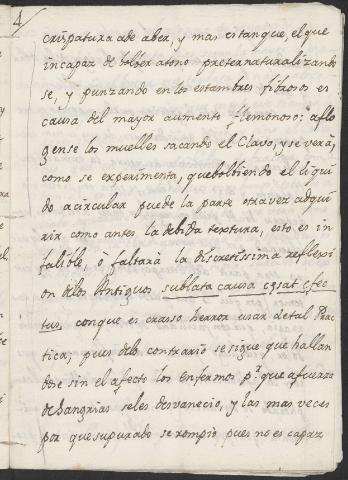 4
crispatura ade aber, y mas estanque, el que
incapaz de bolber atono preternaturalizando
se, y punzando en los estambres fibrosos es
causa del mayor aumento flemonoso: aflo
xense los muelles sacando el Clavo, y se verà,
como se experimenta, que bolbiendo el liqui
do acircular puede la parte otravez adqui
rir como antes la debida textura, esto es in
falible, ò faltarà la discretissima reflexsi
on delos Antiguos sublata causa cesat efec
tus, con que es crasso herror usar de tal Prac
tica; pues delo contrario se sigue que hallan
dose sin el afecto los Enfermos pr. que afuerza
de Sangrias seles desvanecio, y las mas veces
por que supurado se rompiò pues no es capaz